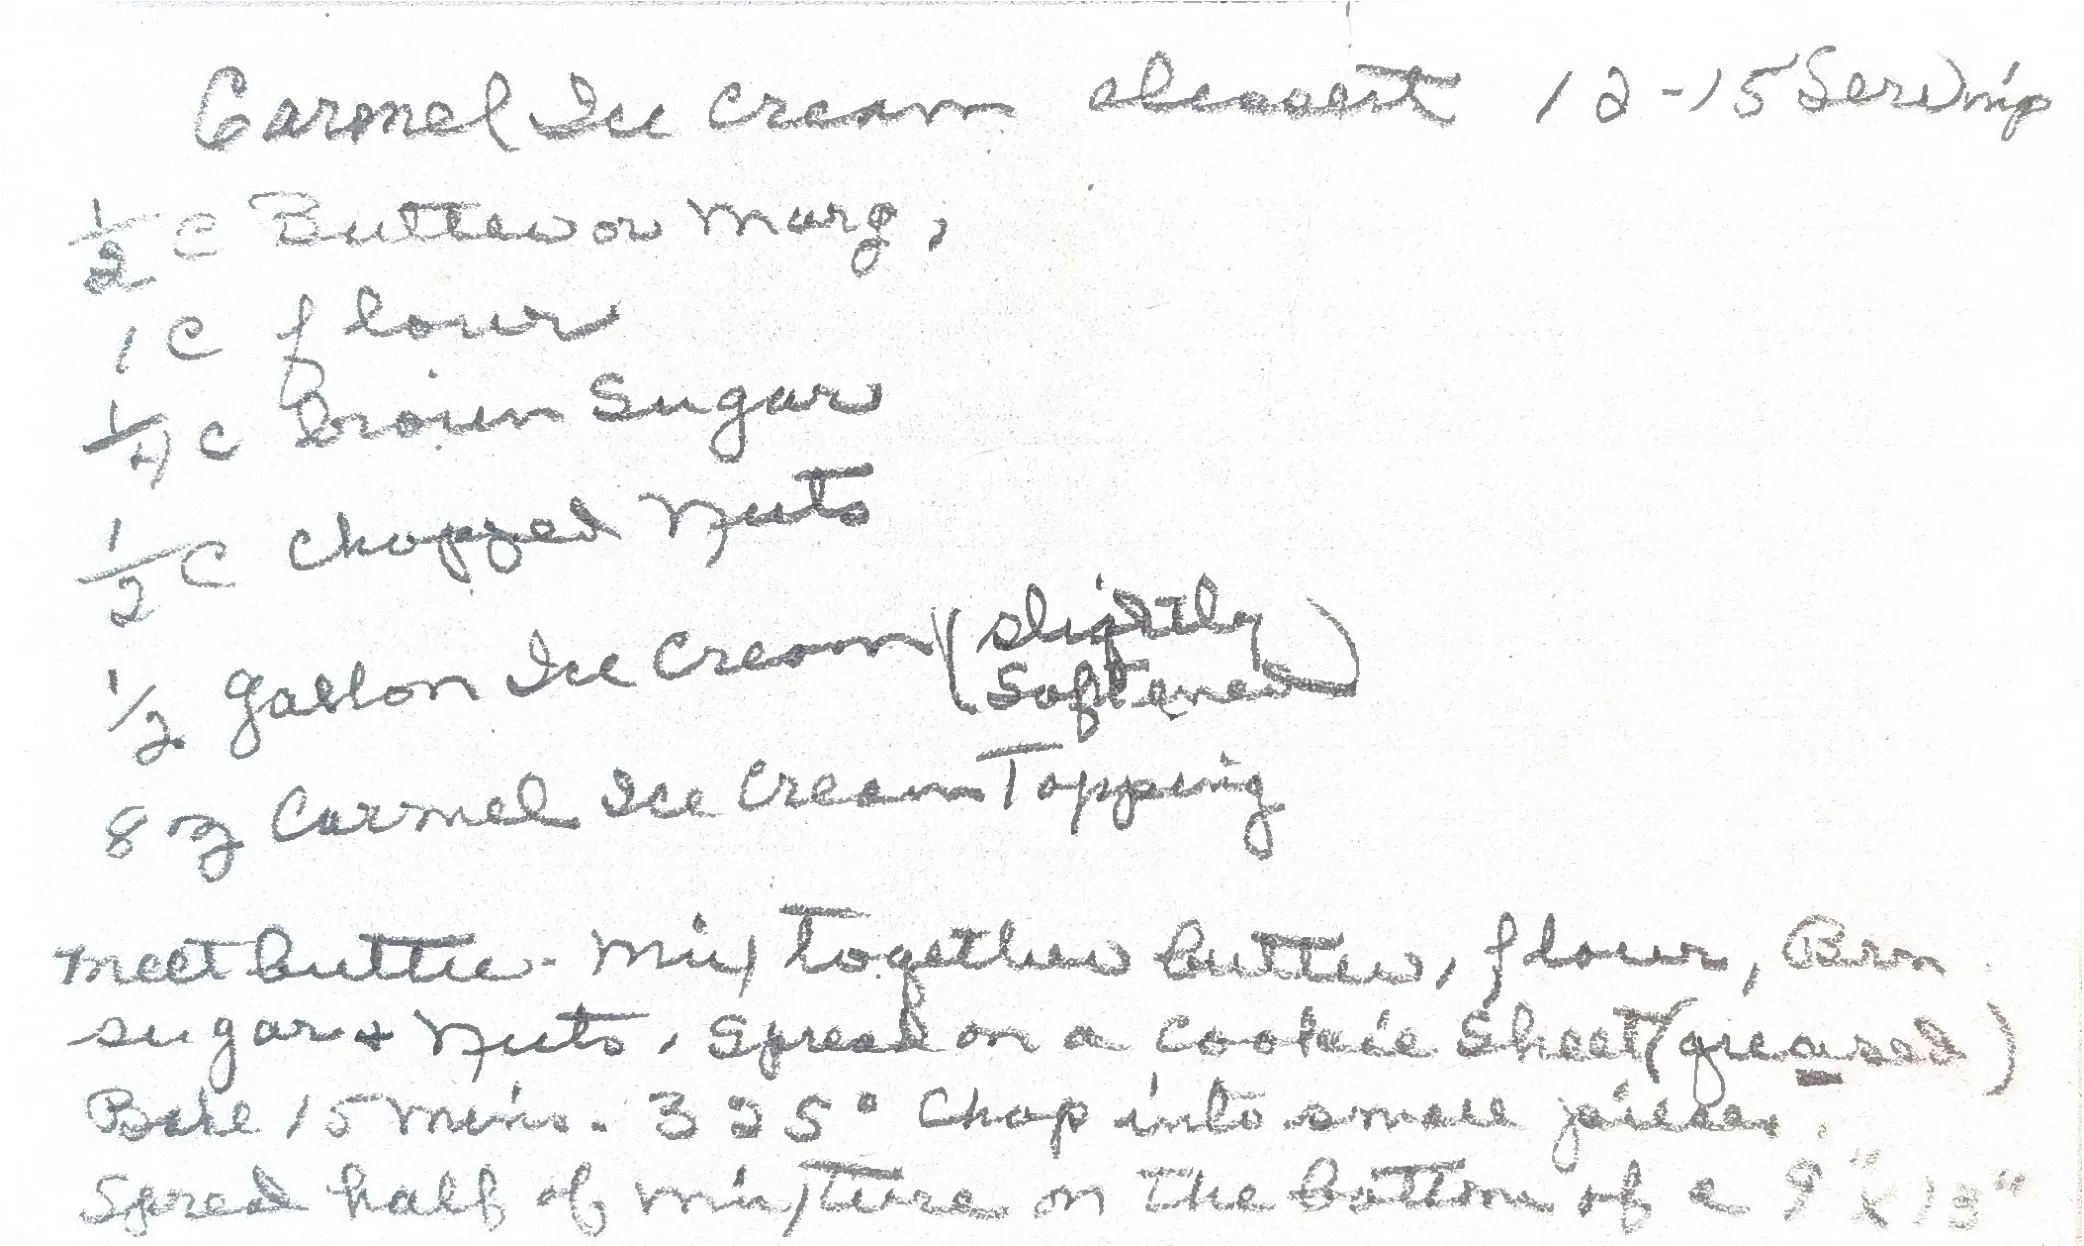 Carmel Ice Cream dessert 12-15 Serving
1/2 C Butter or Marg,
1 C flour
1/4 C Brown Sugar
1/2 C Chopped Nuts
1/2 gallon Ice Cream (slightly Softened)
8 oz Carmel Ice Cream Topping
Melt butter - Mix Together butter, flour, Brn
sugar + Nuts, Spread on a Cookie Sheet (greased)
Bake 15 Mins. 325° Chop into small pieces.
Spread half of mixture on the bottom of a 9" x 13"